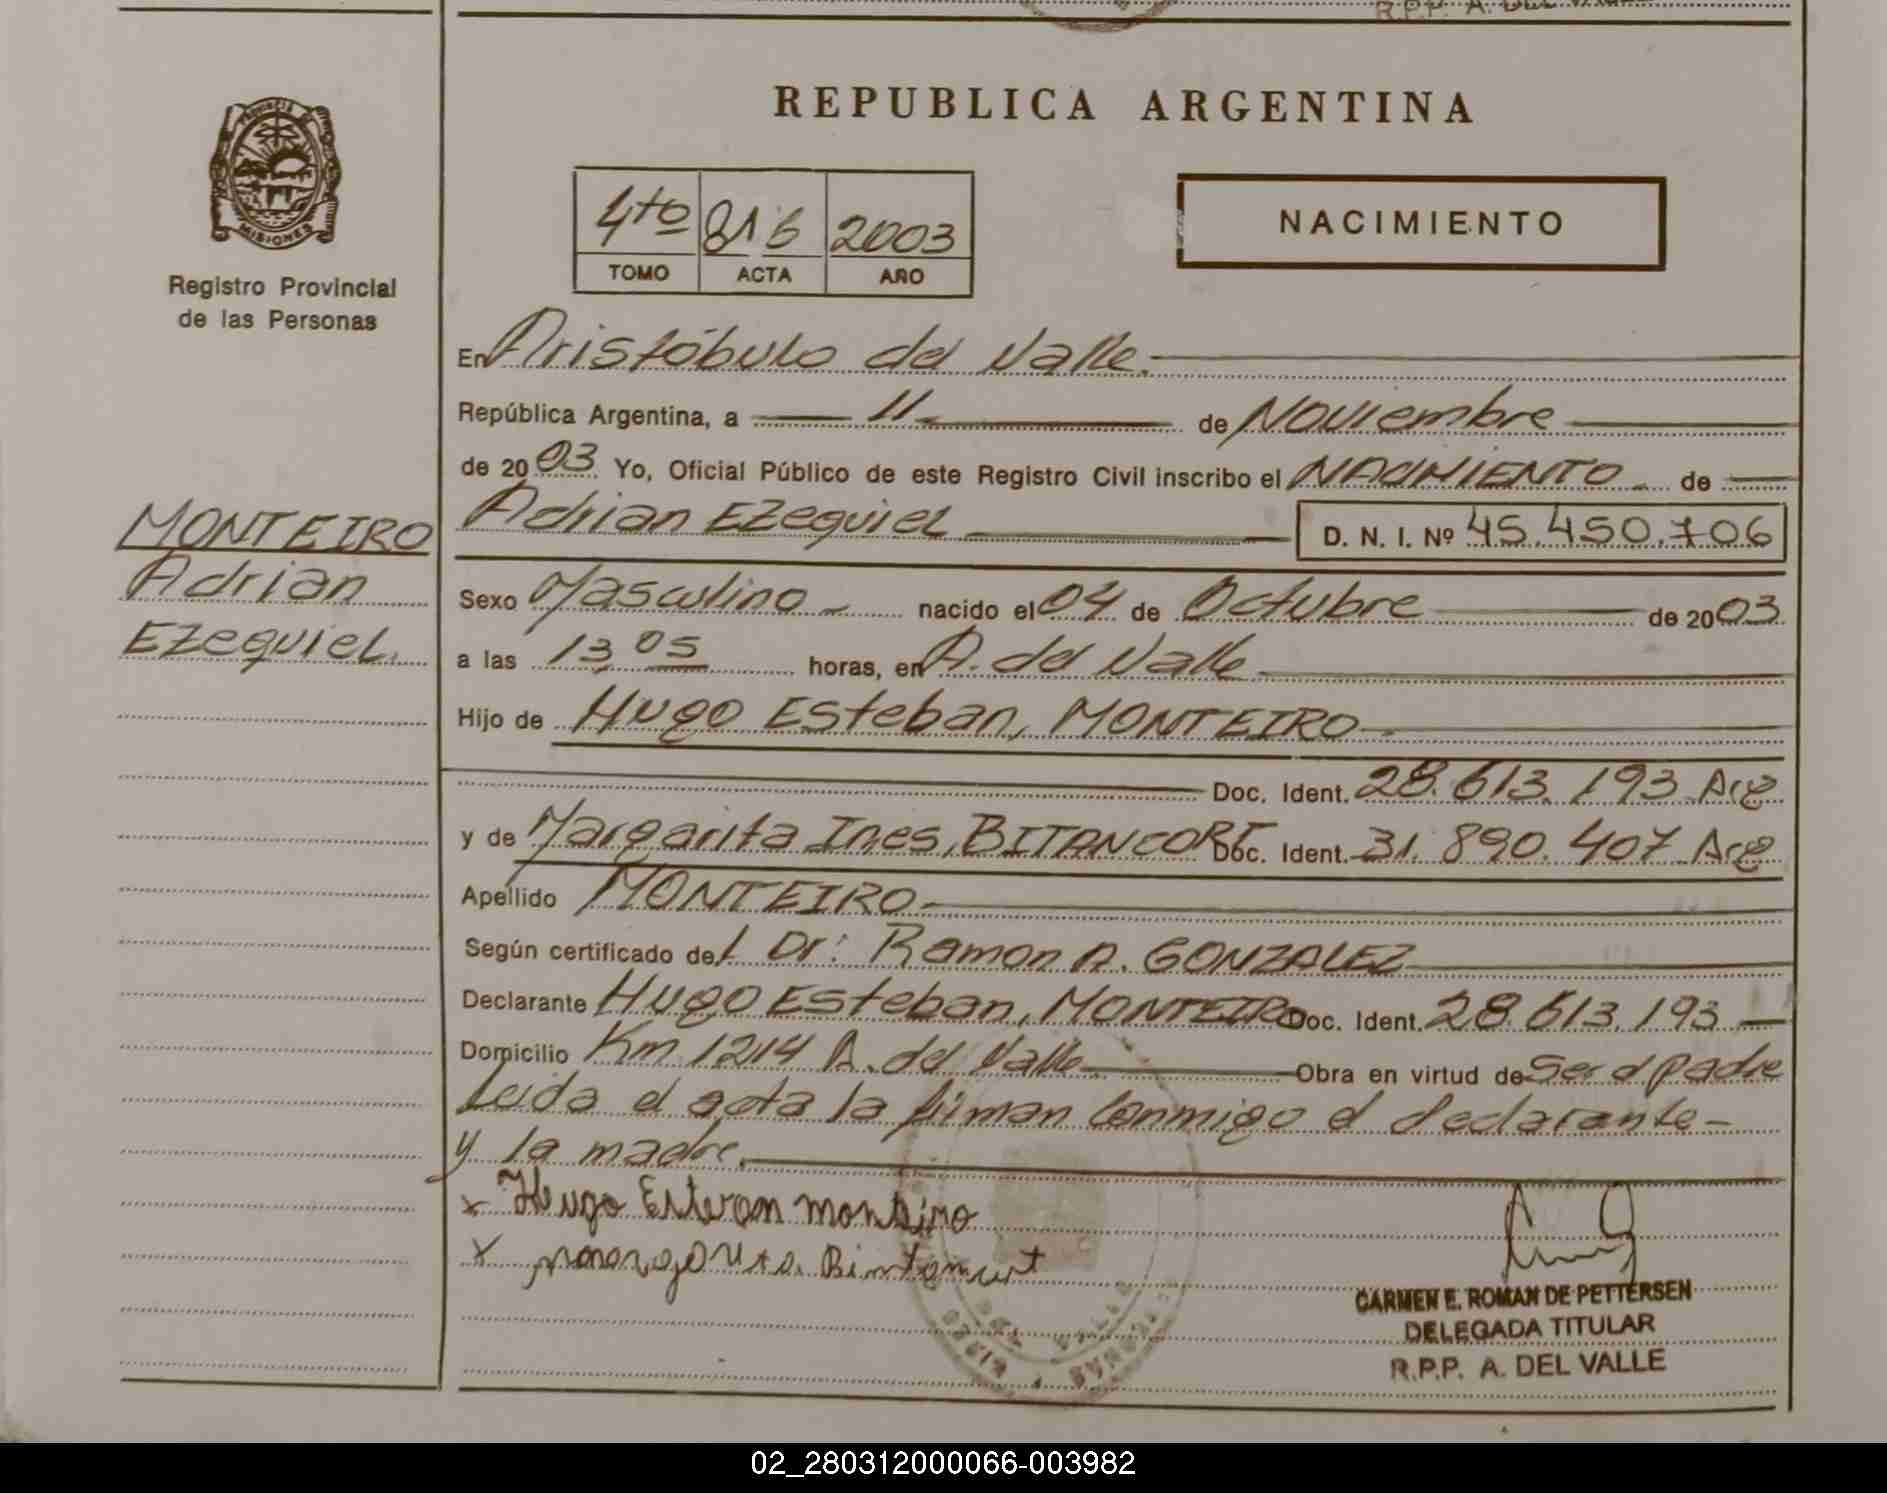 R.P.P. A. DEL VALLE
PROVINCIA DE
MISIONES
Registro Provincial
de las Personas
MONTEIRO
Adrian
Ezequiel.
REPUBLICA ARGENTINA
4to 816 2003
TOMO ACTA AÑO
NACIMIENTO
En Aristóbulo del Valle.
República Argentina, a 11 de Noviembre
de 2003 Yo, Oficial Público de este Registro Civil inscribo el NACIMIENTO de
Adrian Ezequiel D. N. I. Nº 45.450.706
Sexo Masculino nacido el 04 de Octubre de 2003
a las 13 05 horas, en A. del Valle
Hijo de Hugo Esteban, MONTEIRO
Doc. Ident. 28.613.193 Arg
y de Margarita Ines, BITANCORT Doc. Ident. 31.890.407 Arg
Apellido MONTEIRO
Según certificado del Dr: Ramon A. GONZALEZ
Declarante Hugo Esteban, MONTEIRO Doc. Ident. 28.613.193
Domicilio Km 1214 A. del Valle Obra en virtud de Ser el padre
Leida el acta la firman conmigo el declarante
y la madre.
x Hugo Estevan Monteiro
x
CARMEN E. ROMAN DE PETTERSEN
DELEGADA TITULAR
R.P.P. A. DEL VALLE
02_280312000066-003982